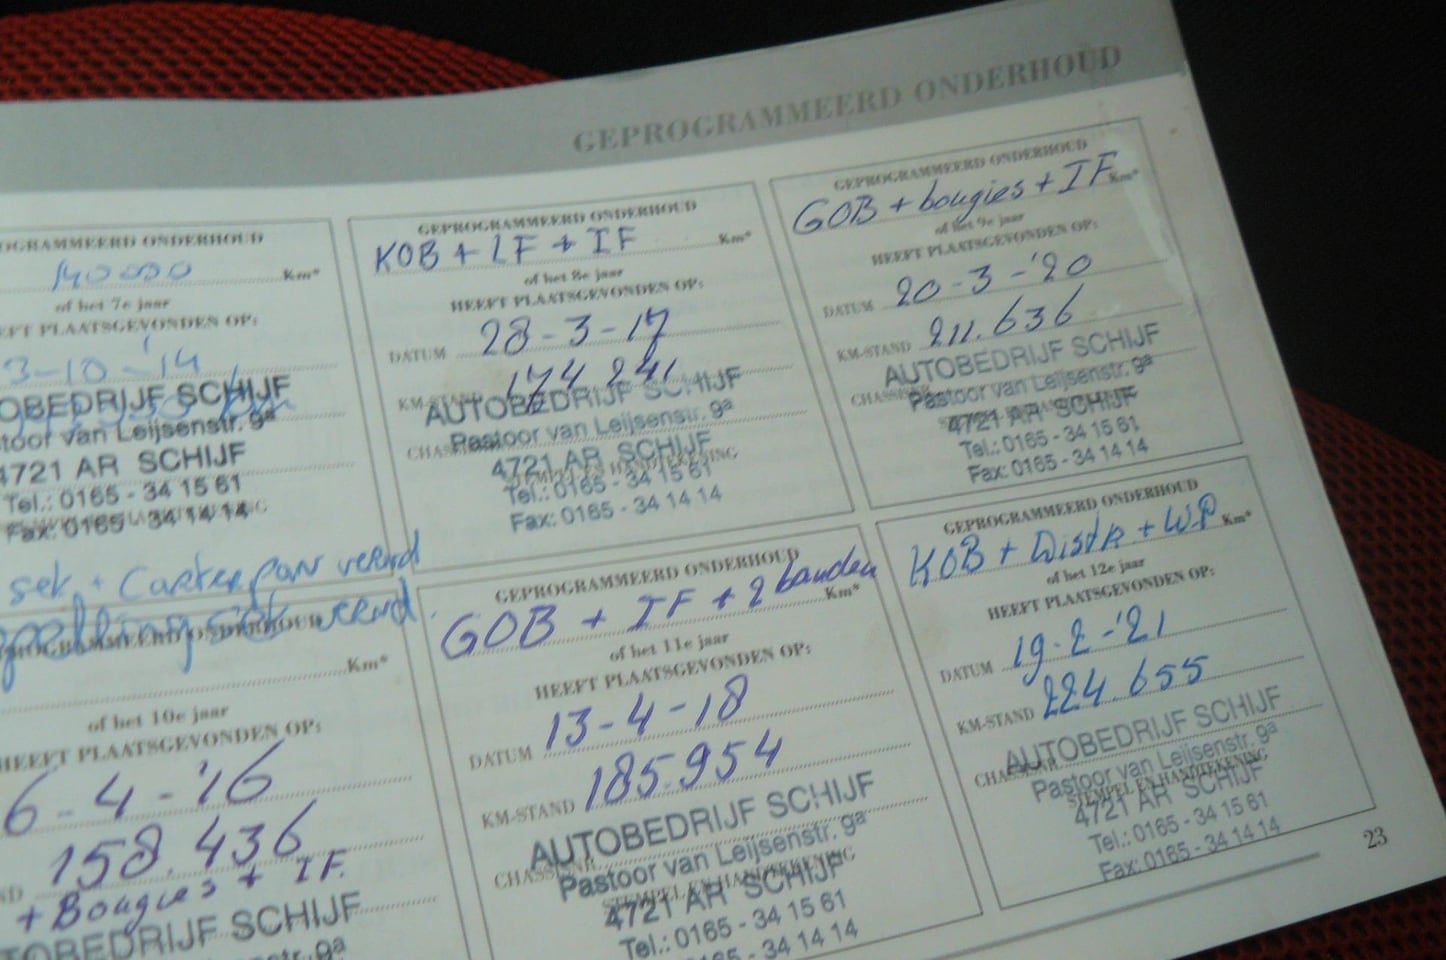 GEPROGRAMMEERD ONDERHOUD
OGRAMMEERD ONDERHOUD
140000 Km*
of het 7e jaar
EFT PLAATSGEVONDEN OP:
3-10-'14
OBEDRIJF SCHIJF
toor van Leijsenstr. 9a
4721 AR SCHIJF
Tel.: 0165 - 34 15 61
Fax: 0165 - 34 14 14
GEPROGRAMMEERD ONDERHOUD
KOB + LF + IF Km*
of het 8e jaar
HEEFT PLAATSGEVONDEN OP:
DATUM 28-3-17
KM-STAND 174 241
AUTOBEDRIJF SCHIJF
Pastoor van Leijsenstr. 9a
4721 AR SCHIJF
STEMPEL EN HANDTEKENING
Tel.: 0165 - 34 15 61
Fax: 0165 - 34 14 14
GEPROGRAMMEERD ONDERHOUD
GOB + bougies + IF Km*
of het 9e jaar
HEEFT PLAATSGEVONDEN OP:
DATUM 20-3-'20
KM-STAND 211.636
AUTOBEDRIJF SCHIJF
Pastoor van Leijsenstr. 9a
4721 AR SCHIJF
Tel.: 0165 - 34 15 61
Fax: 0165 - 34 14 14
set + Carterpan verend
verend.
Km*
of het 10e jaar
HEEFT PLAATSGEVONDEN OP:
6-4-'16
158.436
+ Bougies + IF.
TOBEDRIJF SCHIJF
GEPROGRAMMEERD ONDERHOUD
GOB + IF + 2 banden Km*
of het 11e jaar
HEEFT PLAATSGEVONDEN OP:
DATUM 13-4-18
KM-STAND 185.954
AUTOBEDRIJF SCHIJF
CHASSISNR.
Pastoor van Leijsenstr. 9a
STEMPEL EN HANDTEKENING
4721 AR SCHIJF
Tel.: 0165 - 34 15 61
34 14 14
GEPROGRAMMEERD ONDERHOUD
KOB + Distr + WP Km*
of het 12e jaar
HEEFT PLAATSGEVONDEN OP:
DATUM 19-2-'21
KM-STAND 224.655
AUTOBEDRIJF SCHIJF
CHASSISNR.
Pastoor van Leijsenstr. 9a
STEMPEL EN HANDTEKENING
4721 AR SCHIJF
Tel.: 0165 - 34 15 61
Fax: 0165 - 34 14 14
23